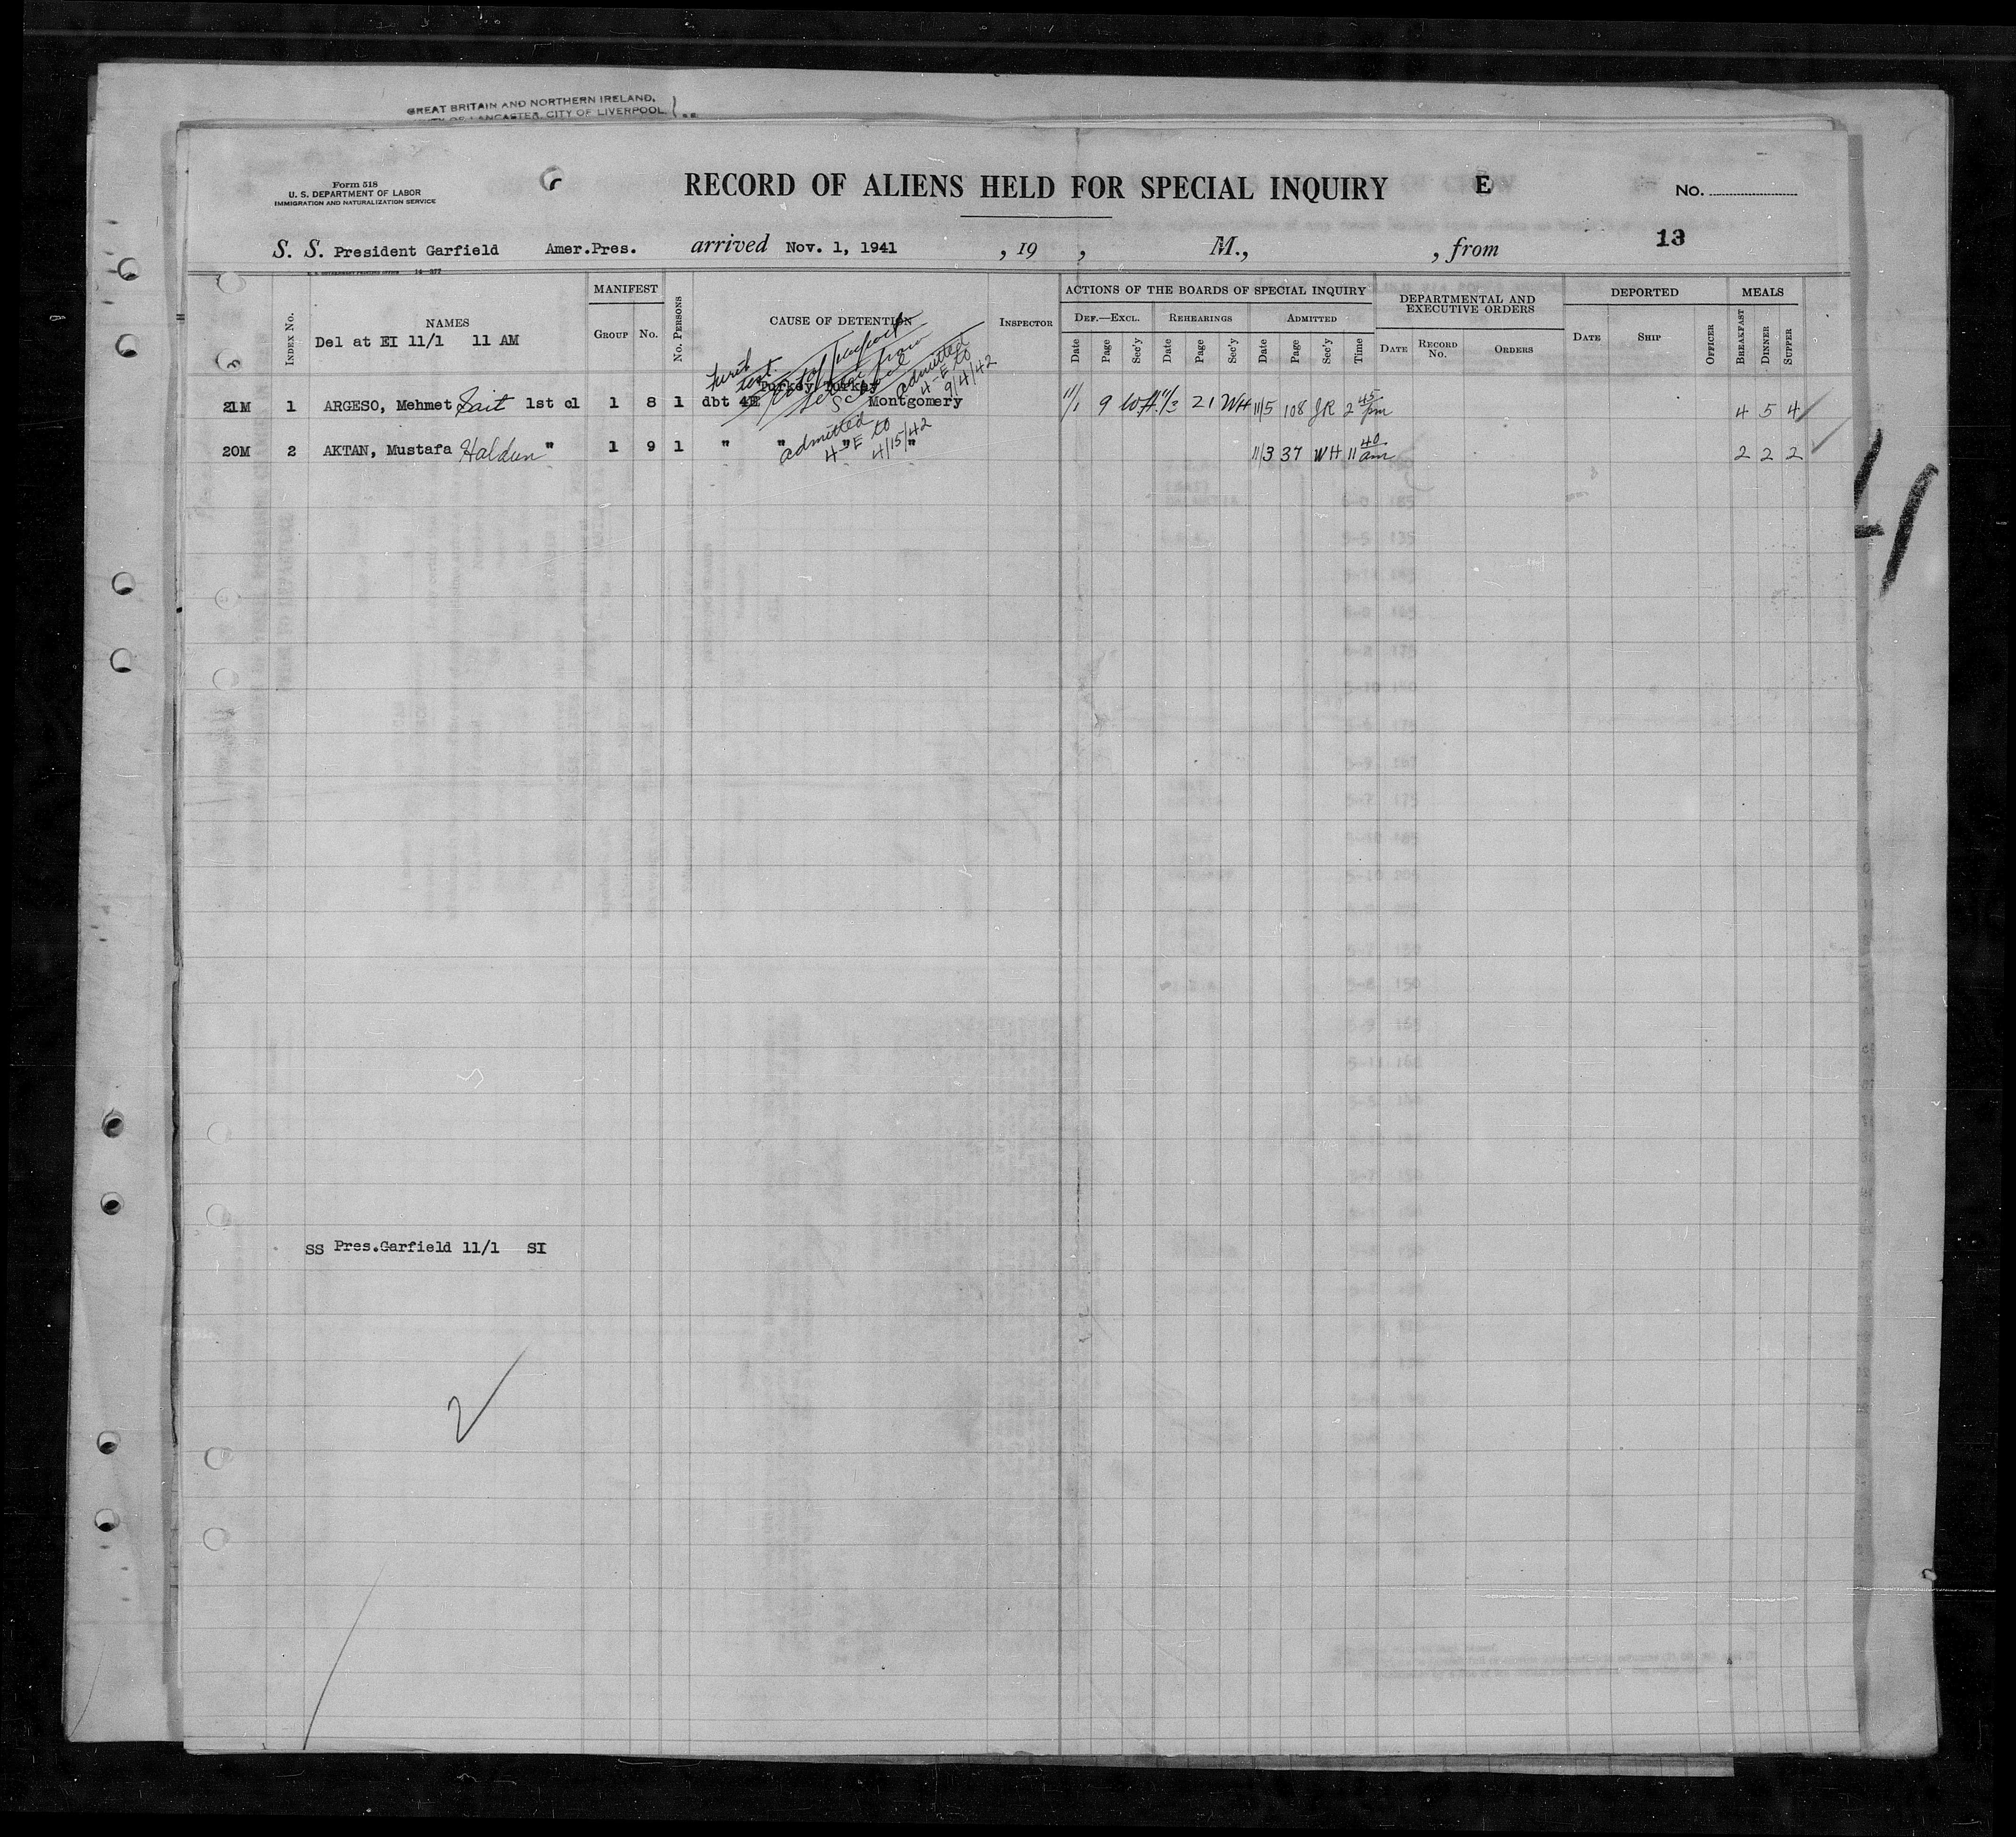 GREAT BRITAIN AND NORTHERN IRELAND,
OF LANCASTER, CITY OF LIVERPOOL
Form 518
U. S. DEPARTMENT OF LABOR
IMMIGRATION AND NATURALIZATION SERVICE
RECORD OF ALIENS HELD FOR SPECIAL INQUIRY E
No.
13
S. S. President Garfield Amer.Pres. arrived Nov. 1, 1941 , 19 , M., , from
INDEX No.
NAMES
Del at EI 11/1 11 AM
MANIFEST
GROUP No.
No. PERSONS
CAUSE OF DETENTION
INSPECTOR
ACTIONS OF THE BOARDS OF SPECIAL INQUIRY
DEF.—EXCL. REHEARINGS ADMITTED
Date Page Sec'y Date Page Sec'y Date Page Sec'y Time
DEPARTMENTAL AND
EXECUTIVE ORDERS
DATE RECORD No. ORDERS
DEPORTED
DATE SHIP OFFICER
MEALS
BREAKFAST DINNER SUPPER
admitted
4-E to
9/4/42
Turkey Turkey
21M 1 ARGESO, Mehmet Sait 1st cl 1 8 1 dbt 4E Montgomery 11/1 9 WH 11/3 21 WH 11/5 108 JR 2 45 pm 4 5 4
20M 2 AKTAN, Mustafa Haldun " 1 9 1 " " " " 11/3 37 WH 11 40 am 2 2 2
admitted
4-E to
4/15/42
SS Pres.Garfield 11/1 SI
2